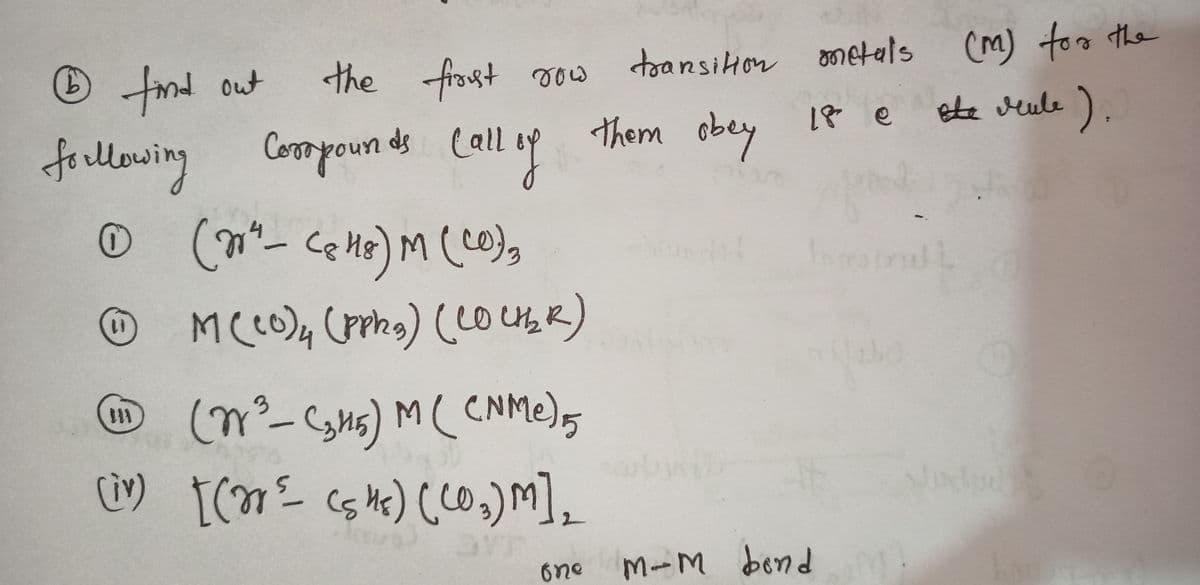 ⓑ find out the first row transition metals (M) for the
following Compounds (all of them obey 18 e rule).
① (η⁴- C₈H₈) M (CO)₃
ⓘⓘ M(CO)₄ (PPh₃) (COCH₂R)
ⓘⓘⓘ (η³- C₃H₅) M ( CNMe)₅
(iv) [(η⁵- C₅H₅) (CO₃) M]₂
one M-M bond